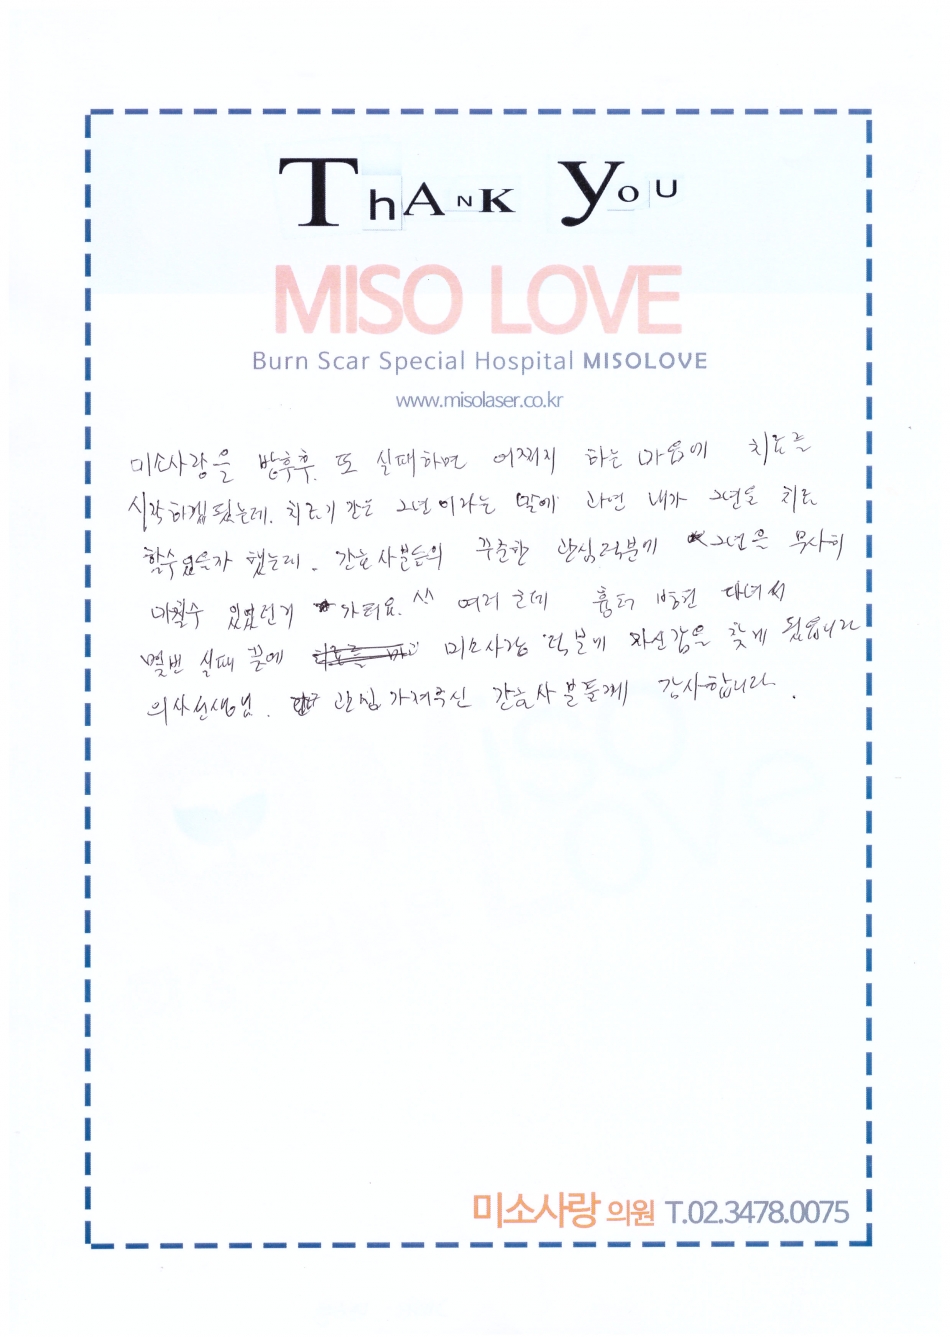 ThANK YOU
MISO LOVE
Burn Scar Special Hospital MISOLOVE
www.misolaser.co.kr
미소사랑을 방후후. 또 실패하면 어쩌지 하는 마음에 치료를
시작하게 됐는데. 치료기간은 2년이라는 말에 과연 내가 2년을 치료
할수있을까 했는데. 간호사분들의 꾸준한 관심덕분에 2년을 무사히
마칠수 있었던거 가터요. ^^ 여러군데 흉터 병원 다녀서
몇번 실패 끝에 미소사랑 덕분에 자신감을 찾게 됬읍니다
의사선생님. 관심가져주신 간호사분들께 감사합니다.
ISO
LOVE
미소사랑 의원 T.02.3478.0075